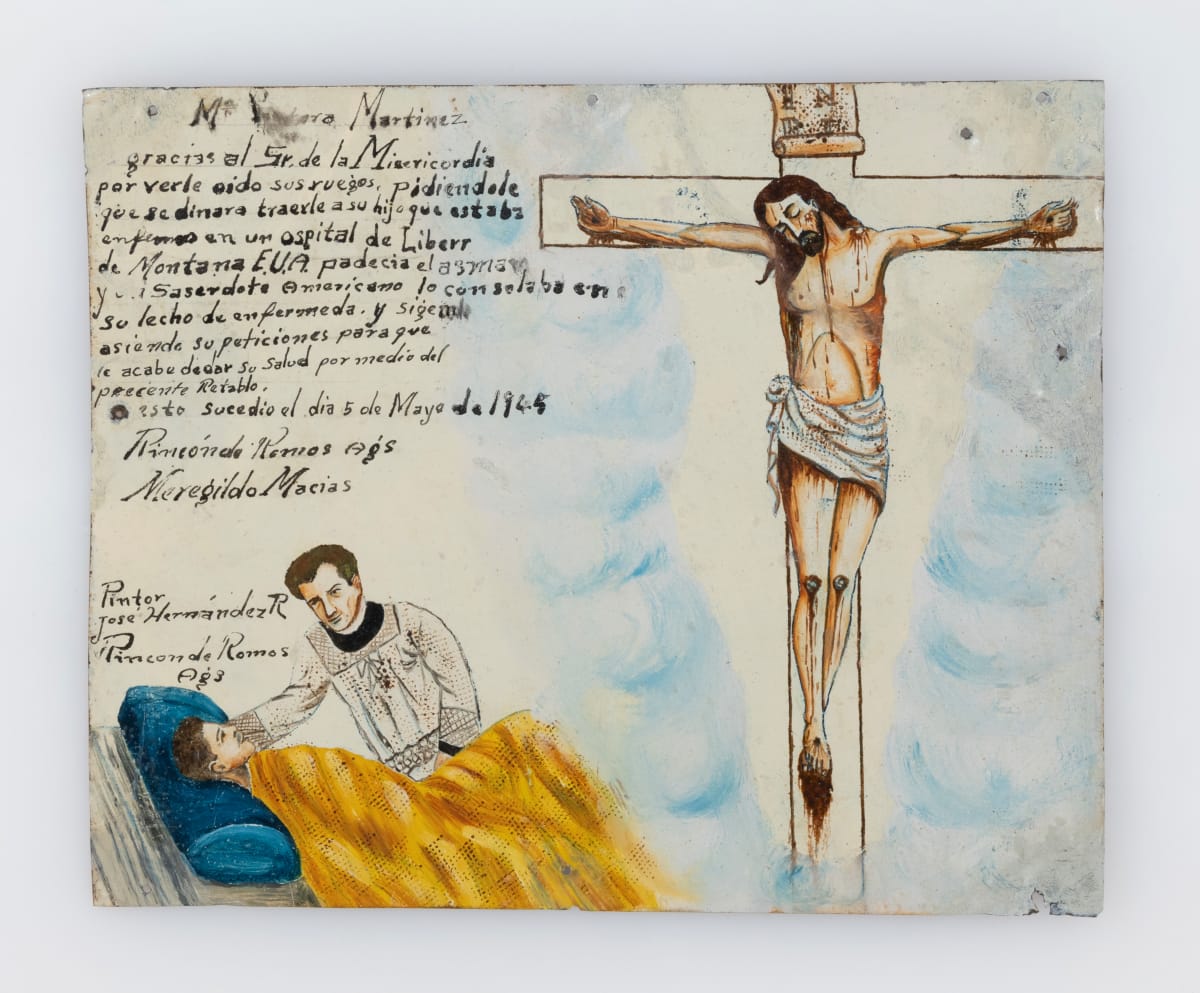 Ma Martinez
gracias al Sr. de la Misericordia
por verle oido sus ruegos, pidiendole
que se dinara traerle a su hijo que estaba
enfermo en un ospital de Liberr
de Montana E.U.A. padecia el asma
y Saserdote Americano lo consolaba en
su lecho de enfermeda. y sigem
asiendo su peticiones para que
le acabe de dar su Salud por medio del
precente Retablo.
esto sucedio el dia 5 de Mayo de 1945
Rincón de Romos Ags
Meregildo Macias
Pintor
José Hernández R
Rincon de Romos
Ags